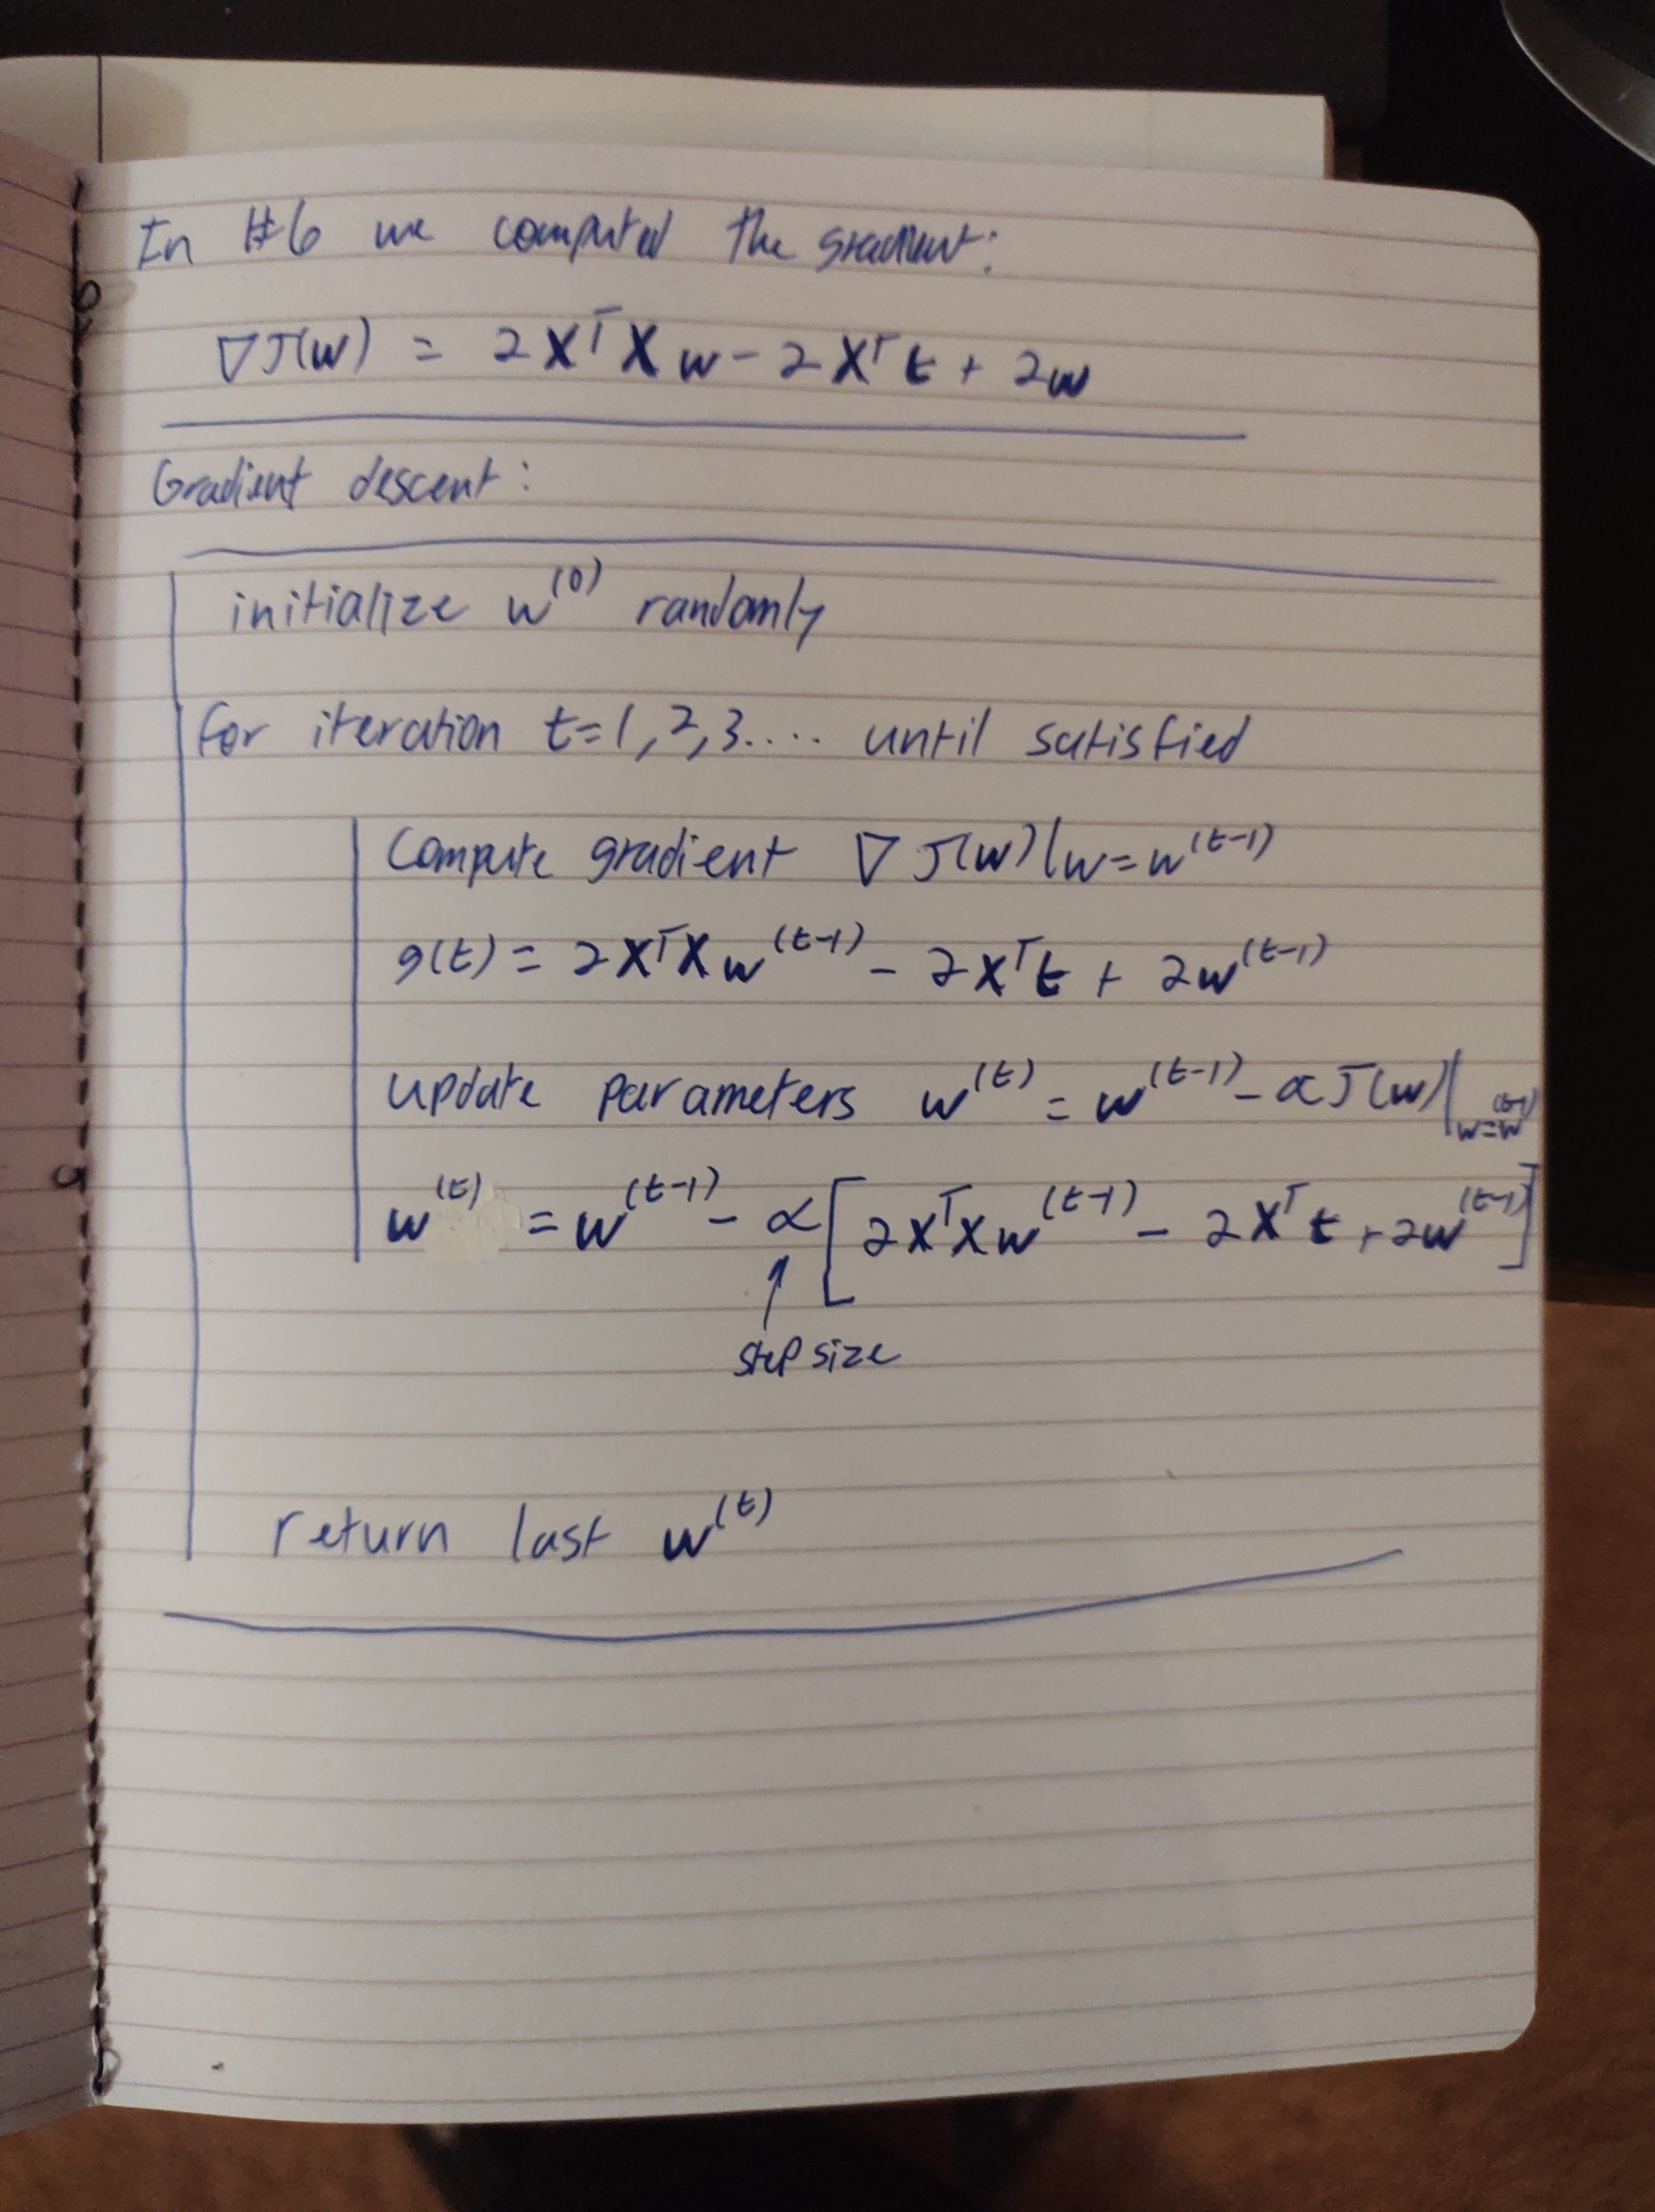 In #6 we computed the gradient:
∇J(w) = 2XᵀXw - 2Xᵀt + 2w
Gradient descent:
initialize w⁽⁰⁾ randomly
for iteration t=1,2,3.... until satisfied
Compute gradient ∇J(w)|w=w⁽ᵗ⁻¹⁾
g(t) = 2XᵀXw⁽ᵗ⁻¹⁾ - 2Xᵀt + 2w⁽ᵗ⁻¹⁾
update parameters w⁽ᵗ⁾ = w⁽ᵗ⁻¹⁾ - αJ(w)|w=w⁽ᵗ⁻¹⁾
w⁽ᵗ⁾ = w⁽ᵗ⁻¹⁾ - α[2XᵀXw⁽ᵗ⁻¹⁾ - 2Xᵀt + 2w⁽ᵗ⁻¹⁾]
↑
step size
return last w⁽ᵗ⁾